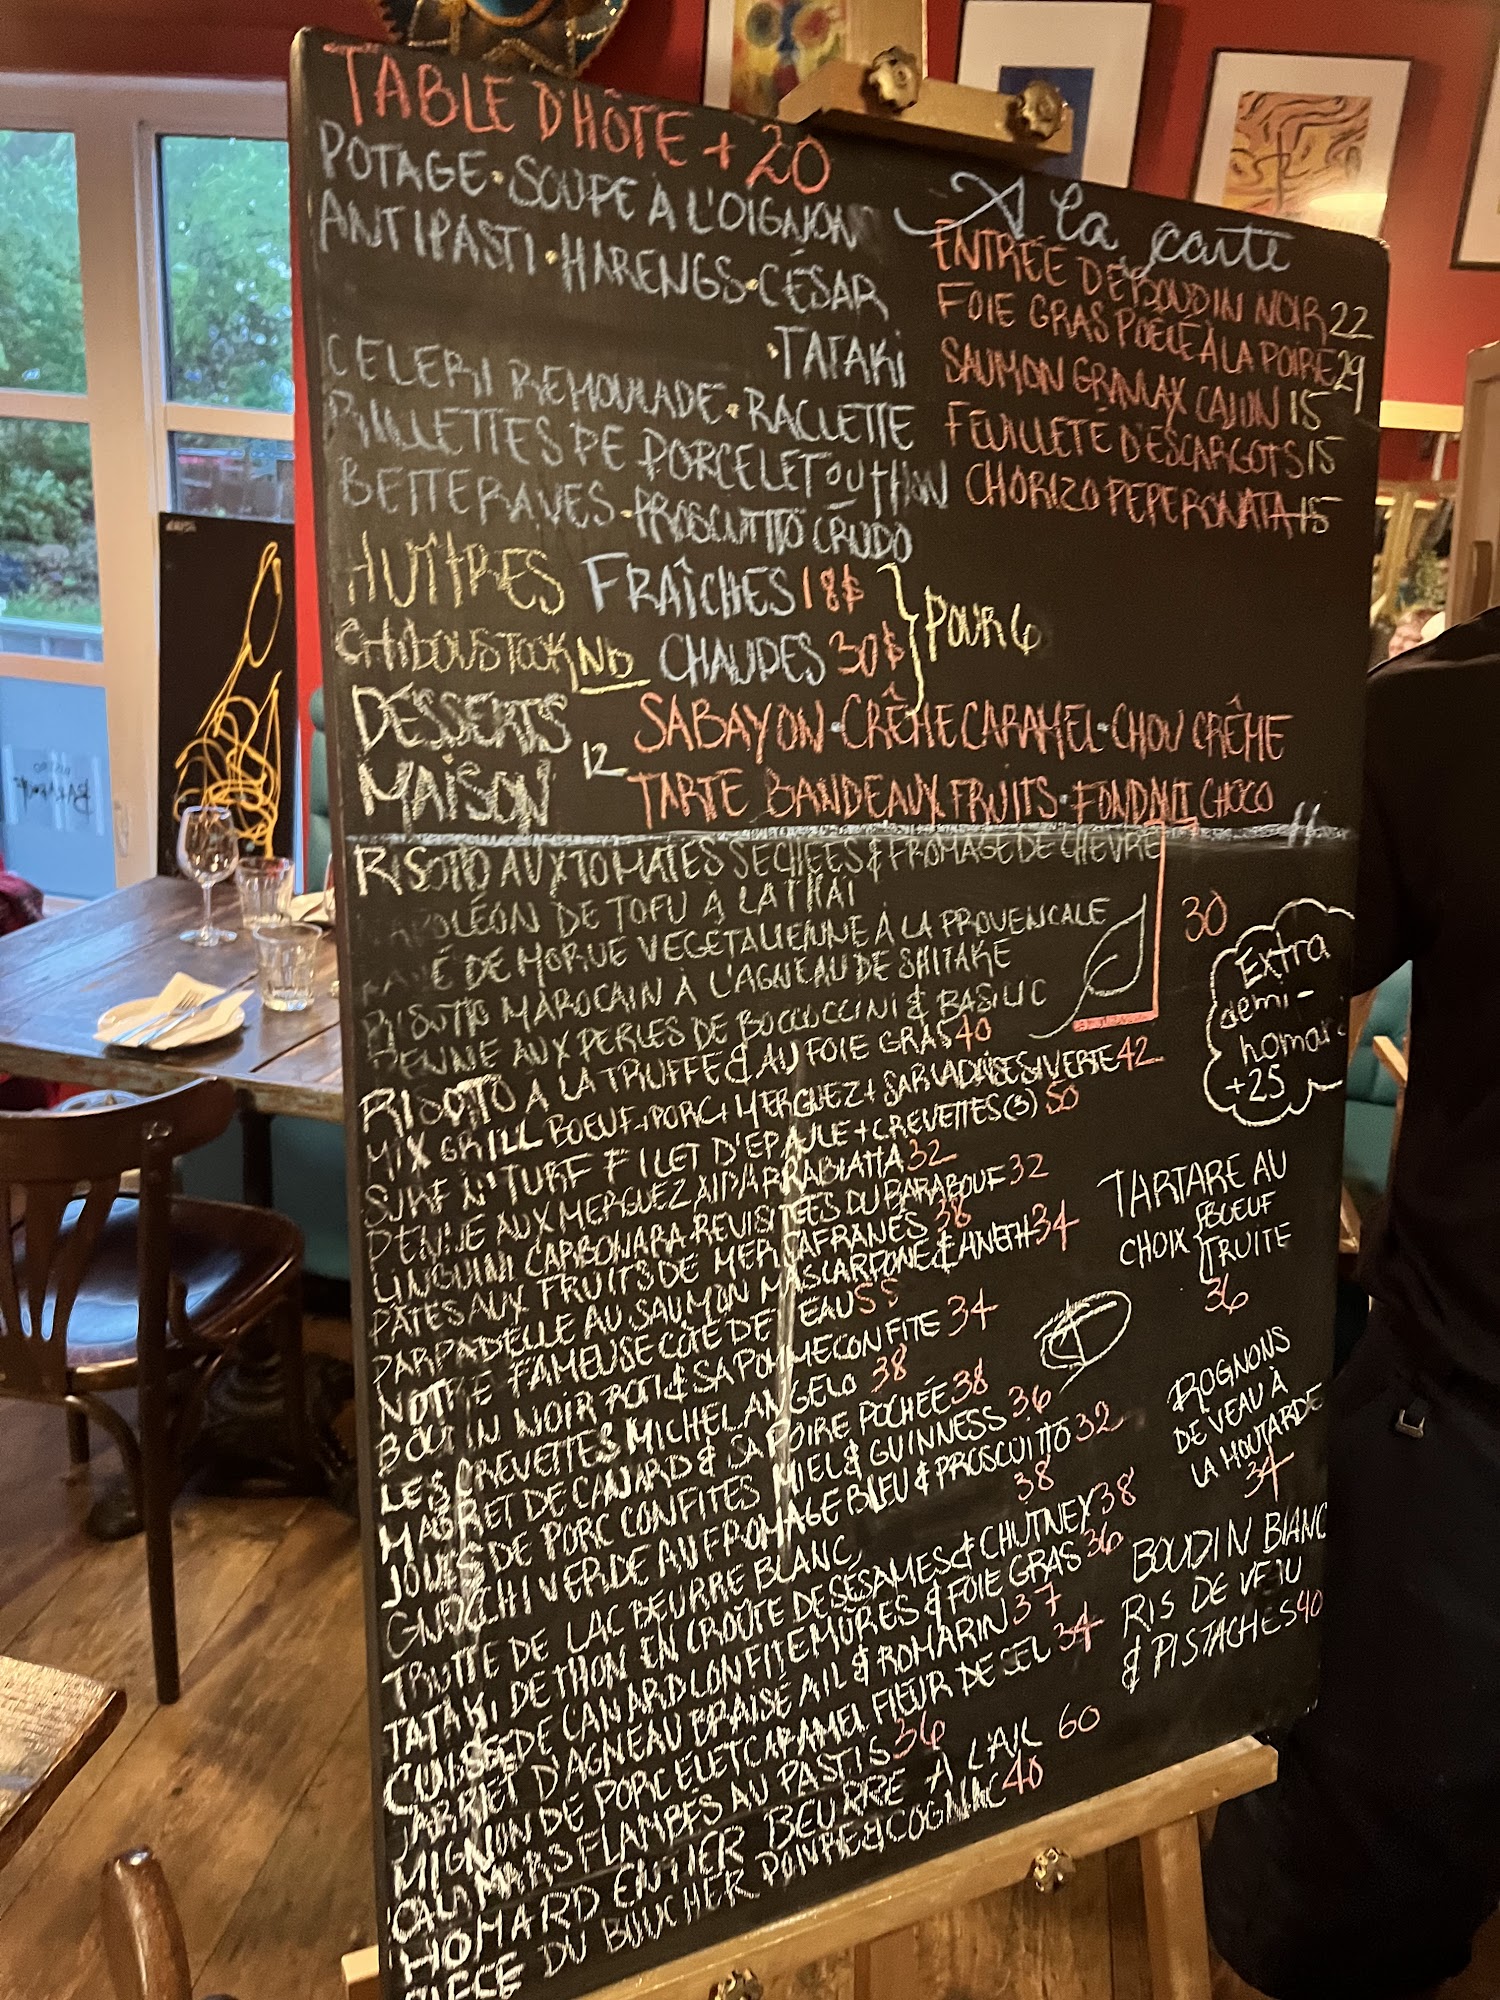 TABLE D'HÔTE + 20
POTAGE • SOUPE À L'OIGNON
ANTIPASTI • HARENGS • CÉSAR
• TATAKI
CELERI REMOULADE • RACLETTE
RILLETTES DE PORCELET OU THON
BETTERAVES • PROSCIUTTO CRUDO
A la carte
ENTRÉE DE BOUDIN NOIR 22
FOIE GRAS POÊLÉ À LA POIRE 29
SAUMON GRAVLAX CAJUN 15
FEUILLETÉ D'ESCARGOTS 15
CHORIZO PEPERONATA 15
HUITRES FRAÎCHES 18$
CHIBOUSTOOK NB CHAUDES 30$
POUR 6
DESSERTS MAISON 12
SABAYON • CRÊME CARAMEL • CHOU CRÊME
TARTE BANDEAUX FRUITS • FONDANT CHOCO
RISOTTO AUX TOMATES SECHÉES & FROMAGE DE CHÈVRE
NAPOLÉON DE TOFU À LA THAI
PAVÉ DE MORUE VEGETALIENNE À LA PROVENCALE
RISOTTO MAROCAIN À L'AGNEAU DE SHITAKE
PENNE AUX PERLES DE BOCCOCCINI & BASILIC
30
RISOTTO A LA TRUFFE & AU FOIE GRAS 40
MIX GRILL BOEUF + PORC + MERGUEZ + SARLADAISES VERTE 42
SURF N' TURF FILET D'EPAULE + CREVETTES (3) 50
PENNE AUX MERGUEZ ARRABIATTA 32
LINGUINI CARBONARA REVISITÉES DU BARABOUF 32
PÂTES AUX FRUITS DE MER SAFRANÉS 38
PARPADELLE AU SAUMON MASCARPONE & ANETH 34
NOTRE FAMEUSE CÔTE DE VEAU 55
BOUDIN NOIR ROTI & SA POMME CONFITE 34
LES CREVETTES MICHELANGELO 38
MAGRET DE CANARD & SA POIRE POCHÉE 38
JOUES DE PORC CONFITES MIEL & GUINNESS 36
GNOCCHI VERDE AU FROMAGE BLEU & PROSCUITTO 32
TRUITE DE LAC BEURRE BLANC 38
TATAKI DE THON EN CROÛTE DE SÉSAMES & CHUTNEY 38
CUISSE DE CANARD CONFITE MÛRES & FOIE GRAS 36
JARRET D'AGNEAU BRAISÉ AIL & ROMARIN 37
MIGNON DE PORCELET CARAMEL FLEUR DE SEL 34
CALAMARS FLAMBÉS AU PASTIS 36
HOMARD ENTIER BEURRE A L'AIL 60
PIECE DU BOUCHER POIVRE & COGNAC 40
Extra
demi-
homard
+25
TARTARE AU
CHOIX
BOEUF
TRUITE
36
ROGNONS
DE VEAU À
LA MOUTARDE
34
BOUDIN BLANC
RIS DE VEAU
& PISTACHES 40